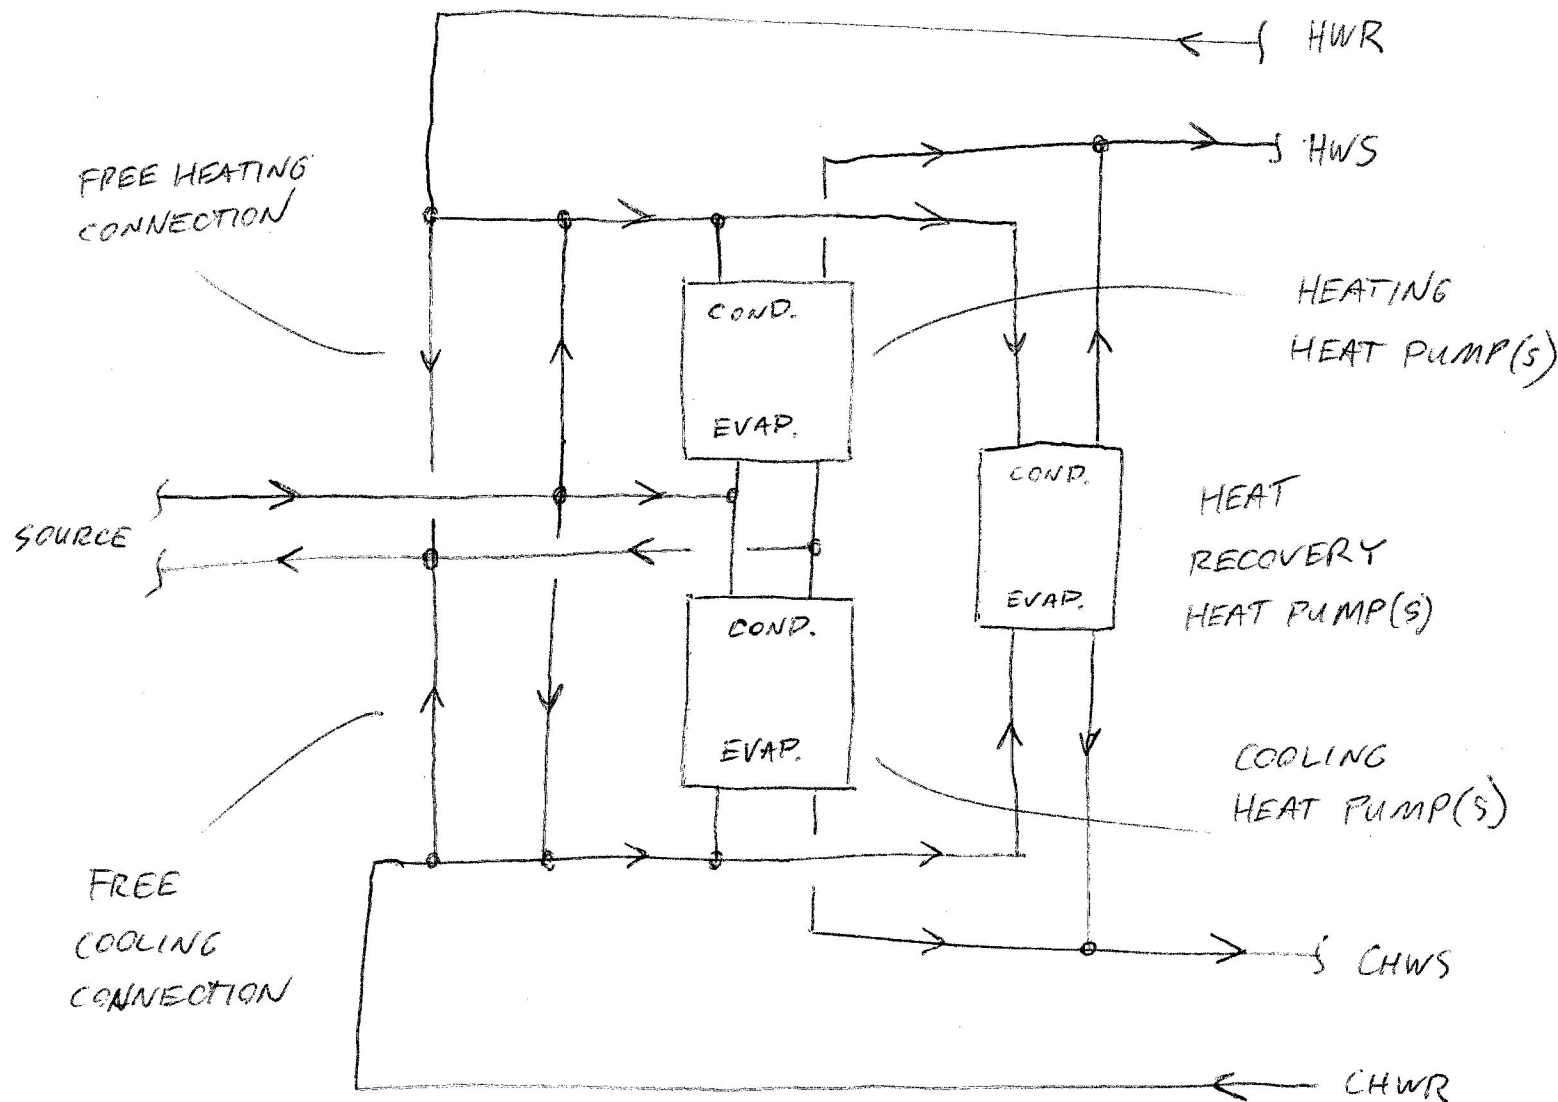 HWR
HWS
FREE HEATING
CONNECTION
COND.
EVAP.
HEATING
HEAT PUMP(S)
SOURCE
COND.
EVAP.
HEAT
RECOVERY
HEAT PUMP(S)
COND.
EVAP.
COOLING
HEAT PUMP(S)
FREE
COOLING
CONNECTION
CHWS
CHWR